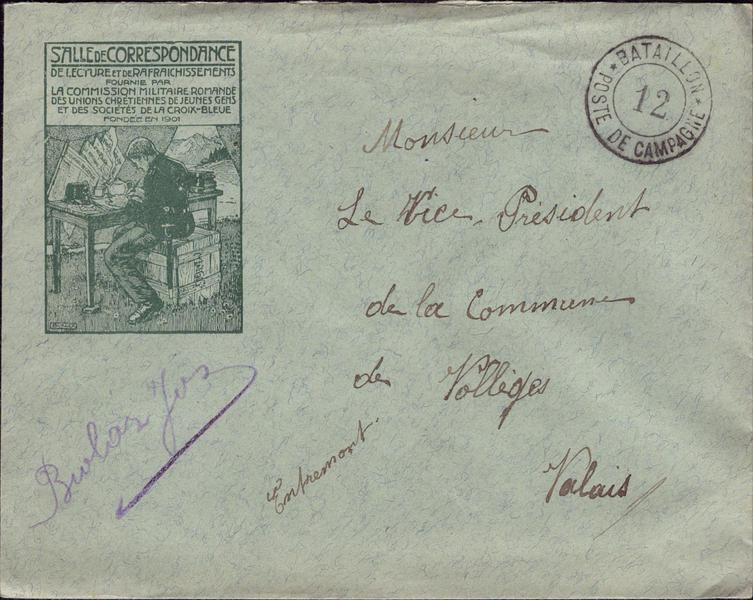 SALLE DE CORRESPONDANCE
DE LECTURE ET DE RAFRAICHISSEMENTS
FOURNIE PAR
LA COMMISSION MILITAIRE ROMANDE
DES UNIONS CHRÉTIENNES DE JEUNES GENS
ET DES SOCIÉTÉS DE LA CROIX-BLEUE
FONDÉE EN 1901
* BATAILLON *
12
POSTE DE CAMPAGNE
Monsieur
Le Vice-Président
de la Commune
de Vollèges
Entremont.
Valais